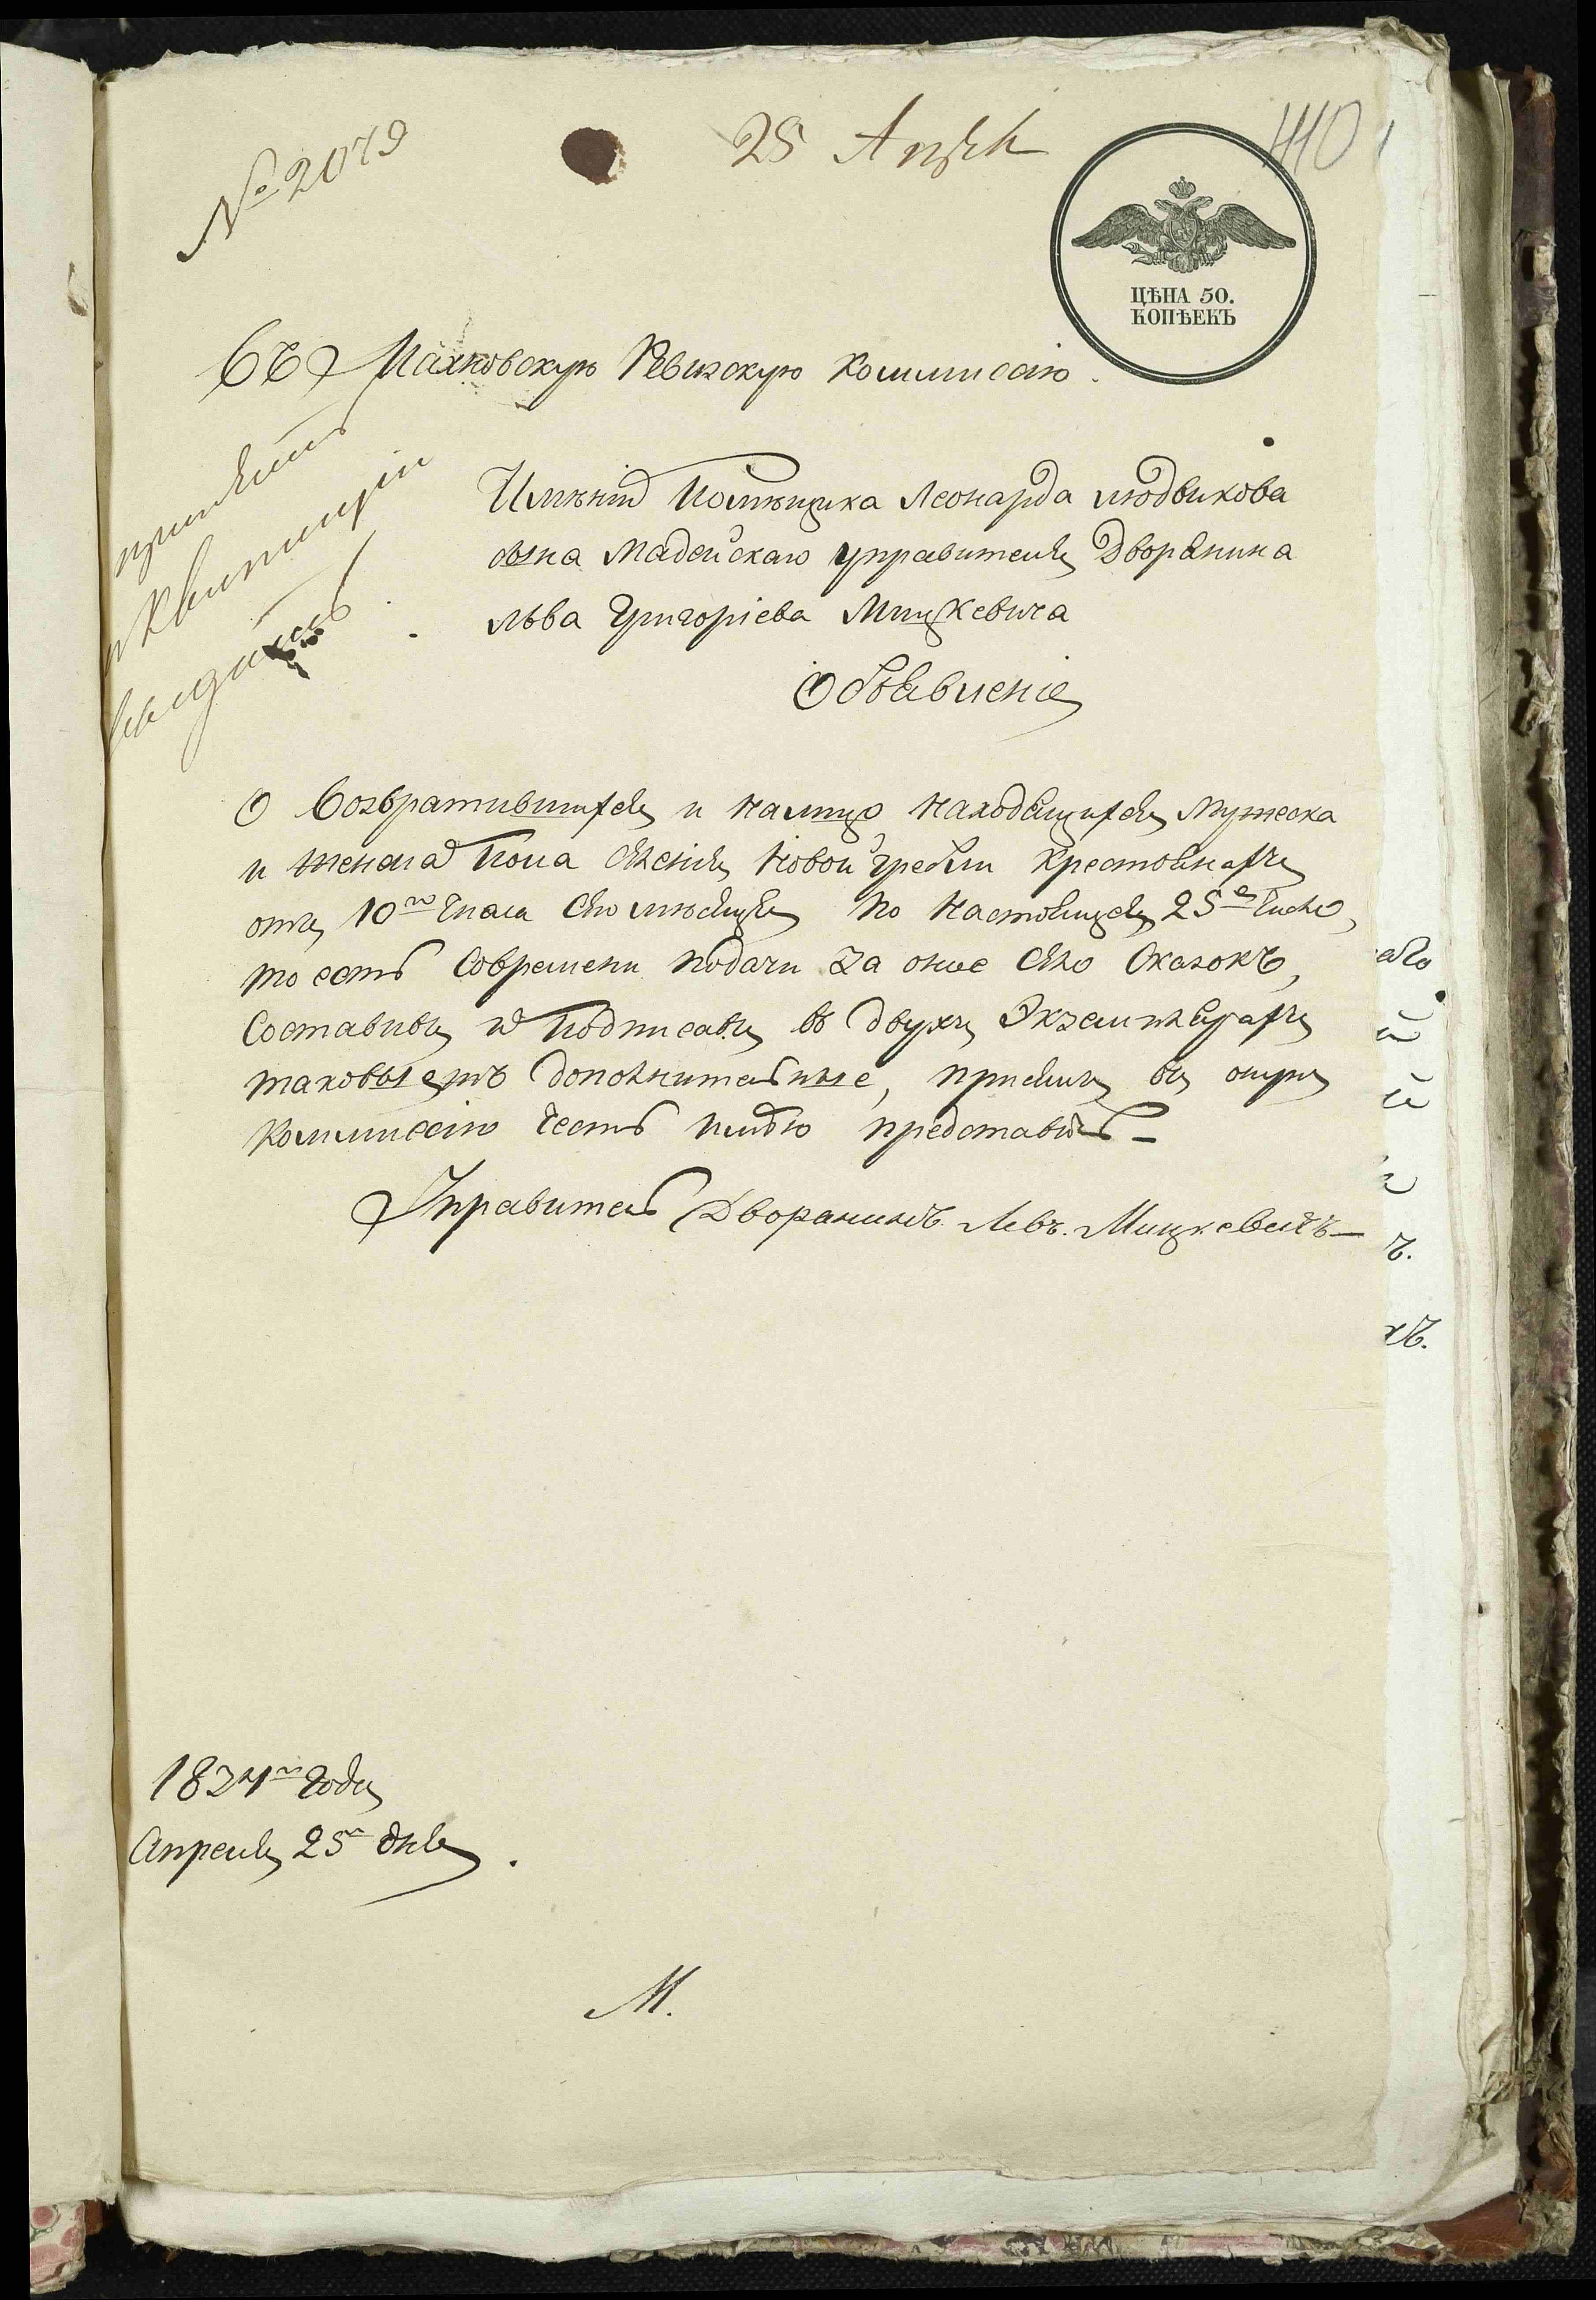 № 2079
25 Апрѣл
440
ЦѢНА 50.
КОПѢЕКЪ
Въ Махновскую Ревизскую Коммиссію.
принять
и квитанцiи
выдать
Имѣнія Помѣщика Леонарда людвикова
сына Мадейскаго управителя Дворянина
льва Григоріева Мицкевича
Объявленіе
О Возвратившихся и налицо находящихся Мужеска
и женска Пола селенія Новой гребли крестьянахъ
отъ 10го числа сего мѣсяца по настоящее 25е число,
то есть Современи подачи за оное село Сказокъ,
Составивъ и Подписавъ въ двухъ Экземплярахъ
таковыежъ дополнительные, при семъ въ оную
коммиссію честь имѣю представить –
Управитель Дворянинъ Левъ. Мицкевичъ –
1834го Года
Апреля 25го дня.
М.